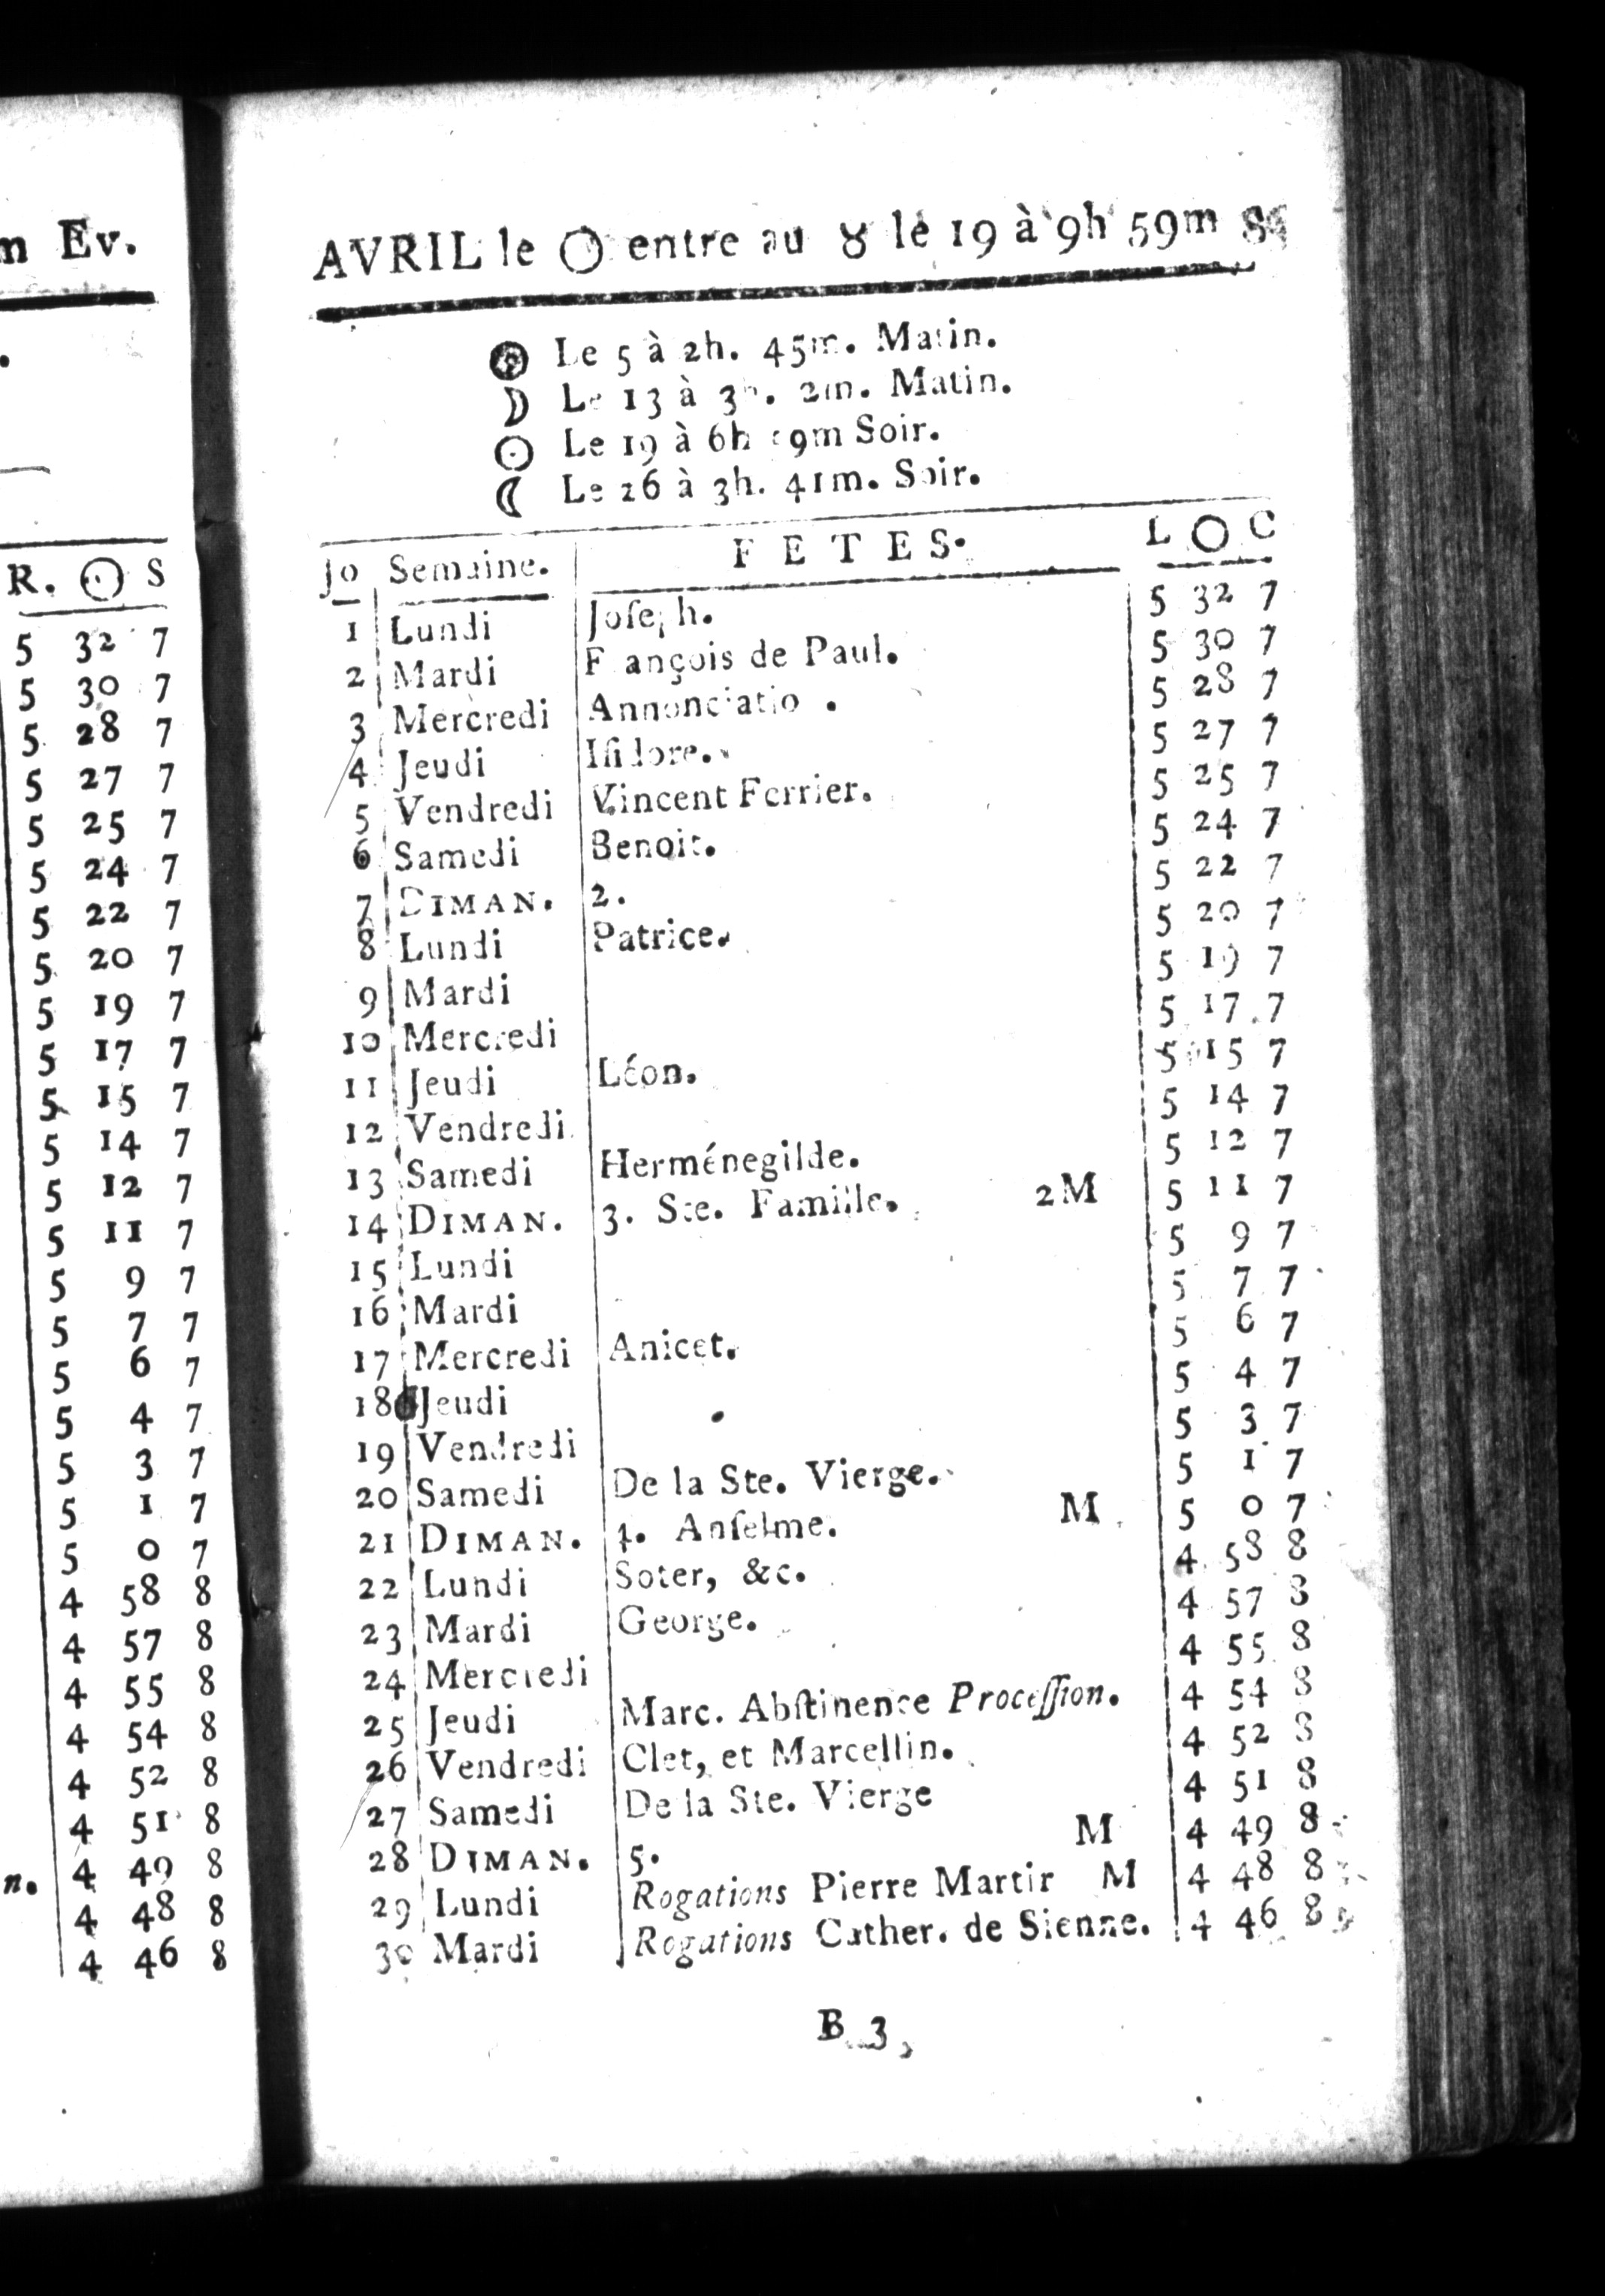 n Ev.
R. ☉ S
5 32 7
5 30 7
5 28 7
5 27 7
5 25 7
5 24 7
5 22 7
5 20 7
5 19 7
5 17 7
5 15 7
5 14 7
5 12 7
5 11 7
5 9 7
5 7 7
5 6 7
5 4 7
5 3 7
5 1 7
5 0 7
4 58 8
4 57 8
4 55 8
4 54 8
4 52 8
4 51 8
n. 4 49 8
4 48 8
4 46 8
AVRIL le ☉ entre au ♉ le 19 à 9h 59m
Le 5 à 2h. 45m. Matin.
☽ Le 13 à 3h. 2m. Matin.
☉ Le 19 à 6h 9m Soir.
☾ Le 26 à 3h. 41m. Soir.
Jo Semaine. FETES. L ☉ C
1 Lundi Joſeph. 5 32 7
2 Mardi F ançois de Paul. 5 30 7
3 Mercredi Annonciatio . 5 28 7
4 Jeudi Iſidore. 5 27 7
5 Vendredi Vincent Ferrier. 5 25 7
6 Samedi Benoit. 5 24 7
7 DIMAN. 2. 5 22 7
8 Lundi Patrice. 5 20 7
9 Mardi 5 19 7
10 Mercredi 5 17 7
11 Jeudi Léon. 5 15 7
12 Vendredi 5 14 7
13 Samedi Herménegilde. 5 12 7
14 DIMAN. 3. Ste. Famille. 2M 5 11 7
15 Lundi 5 9 7
16 Mardi 5 7 7
17 Mercredi Anicet. 5 6 7
18 Jeudi 5 4 7
19 Vendredi 5 3 7
20 Samedi De la Ste. Vierge. 5 1 7
21 DIMAN. 4. Anſelme. M 5 0 7
22 Lundi Soter, &c. 4 58 8
23 Mardi George. 4 57 8
24 Mercredi 4 55 8
25 Jeudi Marc. Abſtinence Proceſſion. 4 54 8
26 Vendredi Clet, et Marcellin. 4 52 8
27 Samedi De la Ste. Vierge 4 51 8
28 DIMAN. 5. M 4 49 8
29 Lundi Rogations Pierre Martir M 4 48 8
30 Mardi Rogations Cather. de Sienne. 4 46 8
B 3